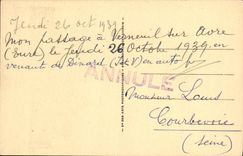 Jeudi 26 oct 1939
Mon passage à Verneuil sur Avre
(Eure) le Jeudi 26 Octobre 1939 en
venant de Dinard (I&V) en auto
ANNULÉ
Monsieur Louis
Courbevoie
(Seine)